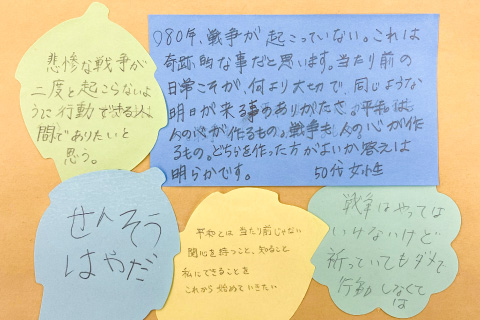 悲惨な戦争が
二度と起こらないよ
うに行動できる人
間でありたいと
思う。
80年、戦争が起こっていない。これは
奇跡的な事だと思います。当たり前の
日常こそが、何より大切で、同じような
明日が来る事のありがたさ。平和は、
人の心が作るもの。戦争も、人の心が作
るもの。どちらを作った方がよいか答えは
明らかです。 50代 女性
せんそう
はやだ
平和とは当たり前じゃない
関心を持つこと、知ること
私にできることを
これから始めていきたい
戦争はやっては
いけないけど
祈っていてもダメで
行動しなくて
は